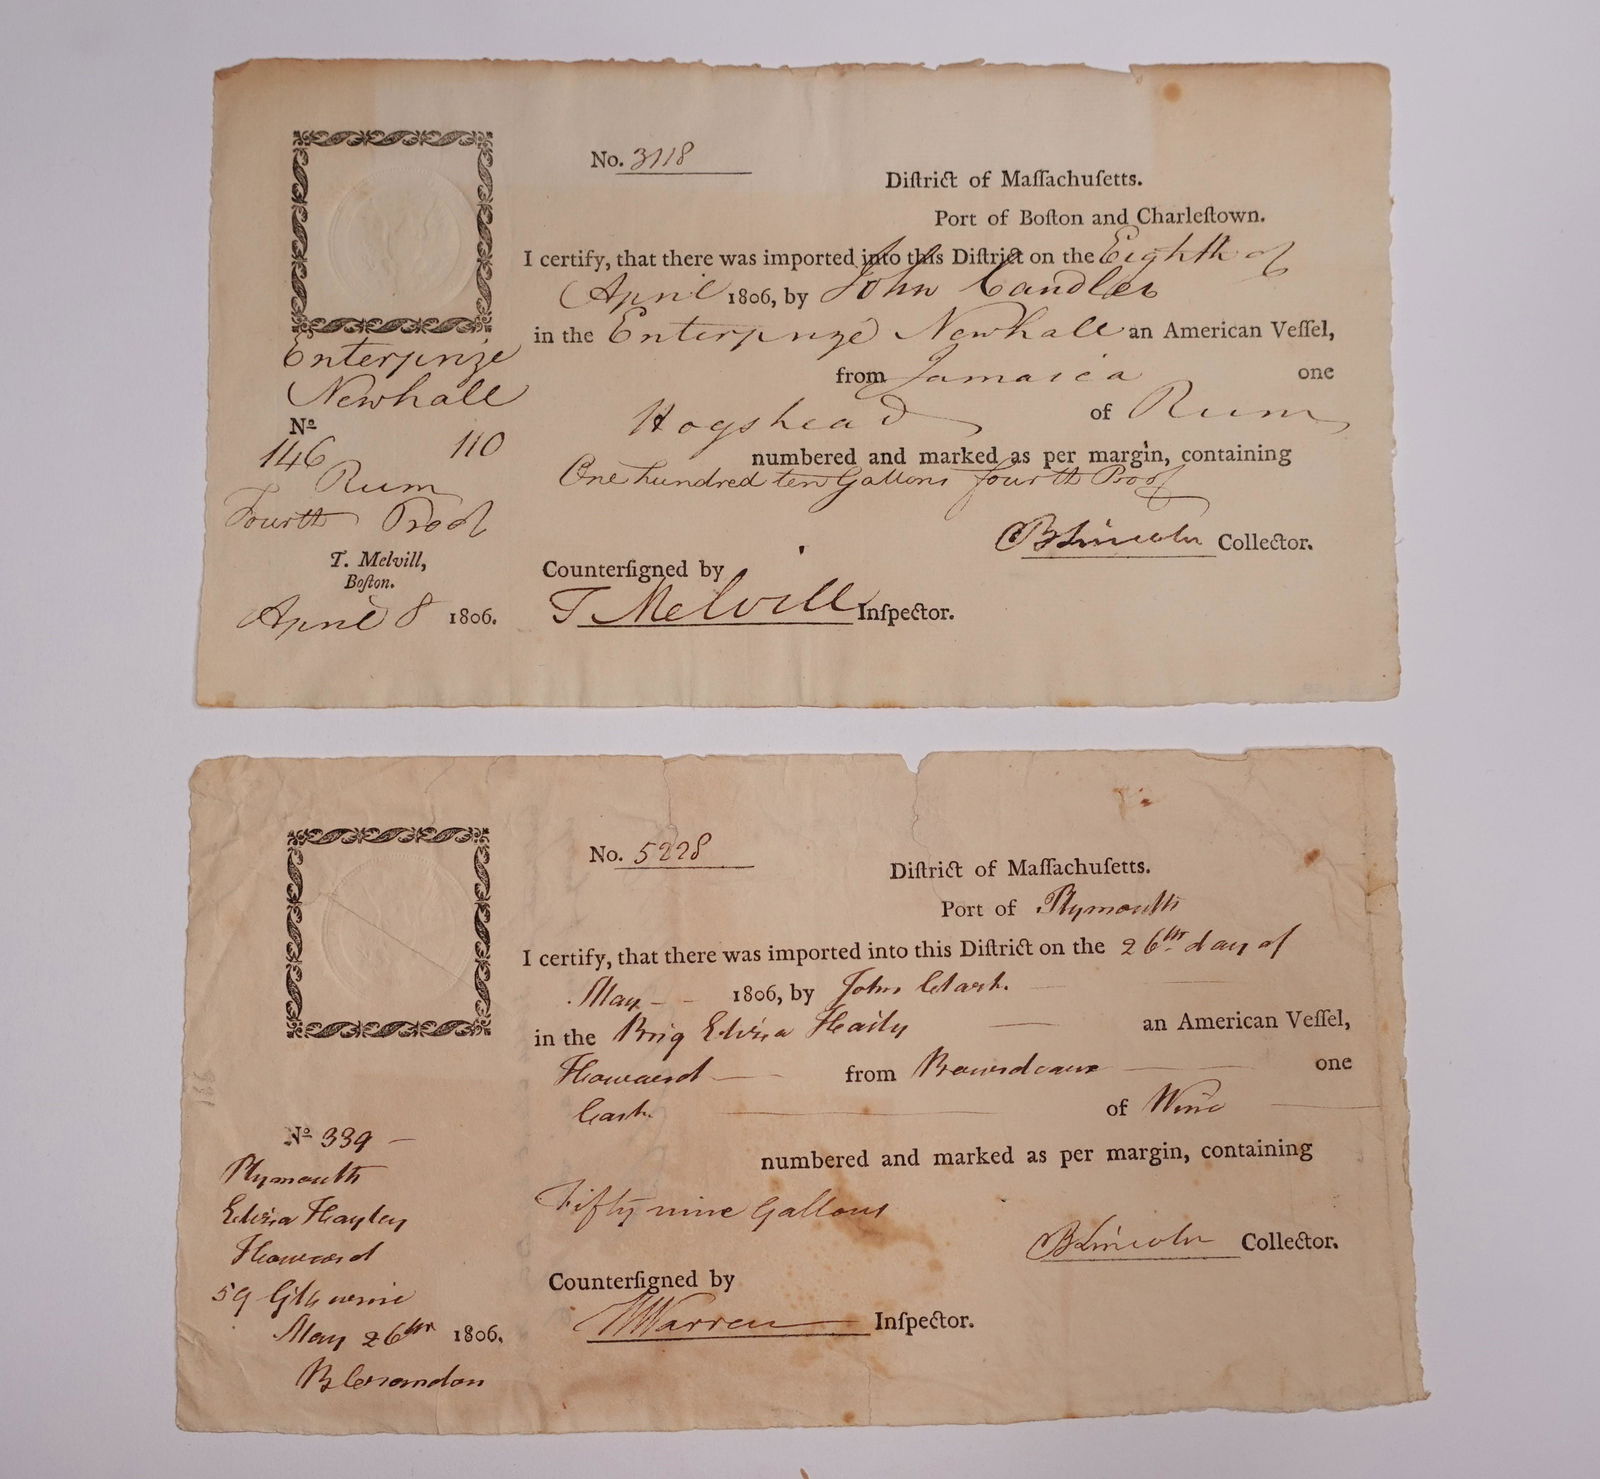 No. 3118
Diſtrict of Maſſachuſetts.
Port of Boſton and Charleſtown.
I certify, that there was imported into this Diſtrict on the Eighth of
April 1806, by John Candler
in the Enterprize Newhall an American Veſſel,
from Jamaica one
Hogshead of Rum
numbered and marked as per margin, containing
One hundred ten Gallons fourth Proof
BLincoln Collector.
Counterſigned by
T Melvill Inſpector.
Enterprize
Newhall
No
146 110
Rum
Fourth Proof
T. Melvill,
Boſton.
April 8 1806.
No. 5228
Diſtrict of Maſſachuſetts.
Port of Plymouth
I certify, that there was imported into this Diſtrict on the 26th day of
May 1806, by John Clark.
in the Brig Haily an American Veſſel,
Howard from one
Cask. of Wine
numbered and marked as per margin, containing
Fifty nine Gallons
BLincoln Collector.
Counterſigned by
Warren Inſpector.
No 339
Plymouth
Hayley
Howard
59 wine
May 26th 1806.
B Crandon